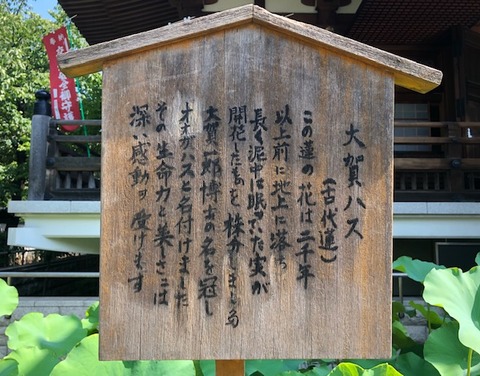 大賀ハス
(古代蓮)
この蓮の花は二千年
以上前に地上に落ち
長く泥中に眠っていた実が
開花したものを株分しました
大賀一郎博士の名を冠し
オオガハスと名付けました
その生命力と美しさには
深い感動を受けます